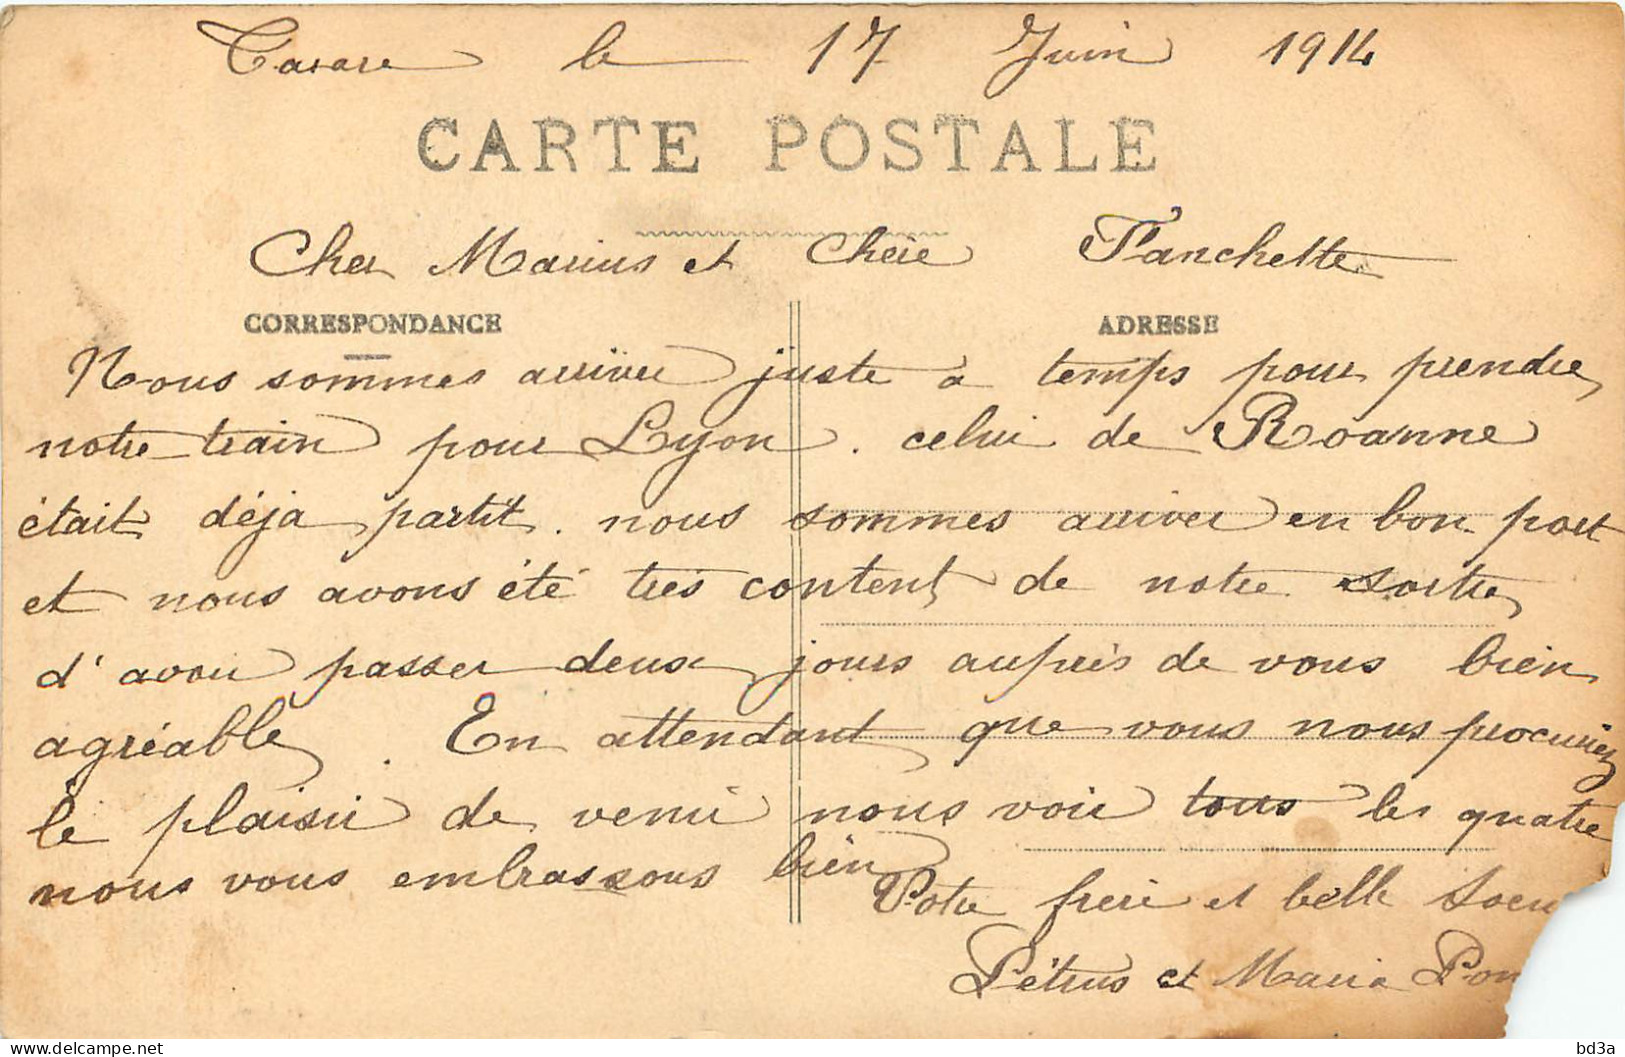 Tarare le 17 Juin 1914
CARTE POSTALE
Cher Marius et Chère Fanchette
CORRESPONDANCE
ADRESSE
Nous sommes arriver juste a temps pour prendre
notre train pour Lyon. celui de Roanne
était déja partit. nous sommes arriver en bon port
et nous avons été très content de notre sortie
d'avoir passer deux jours auprès de vous bien
agréable. En attendant que vous nous procuriez
le plaisir de venir nous voir tous les quatre
nous vous embrassons bien
Votre frère et belle Soeu
Pétrus et Maria Pon
bd3a